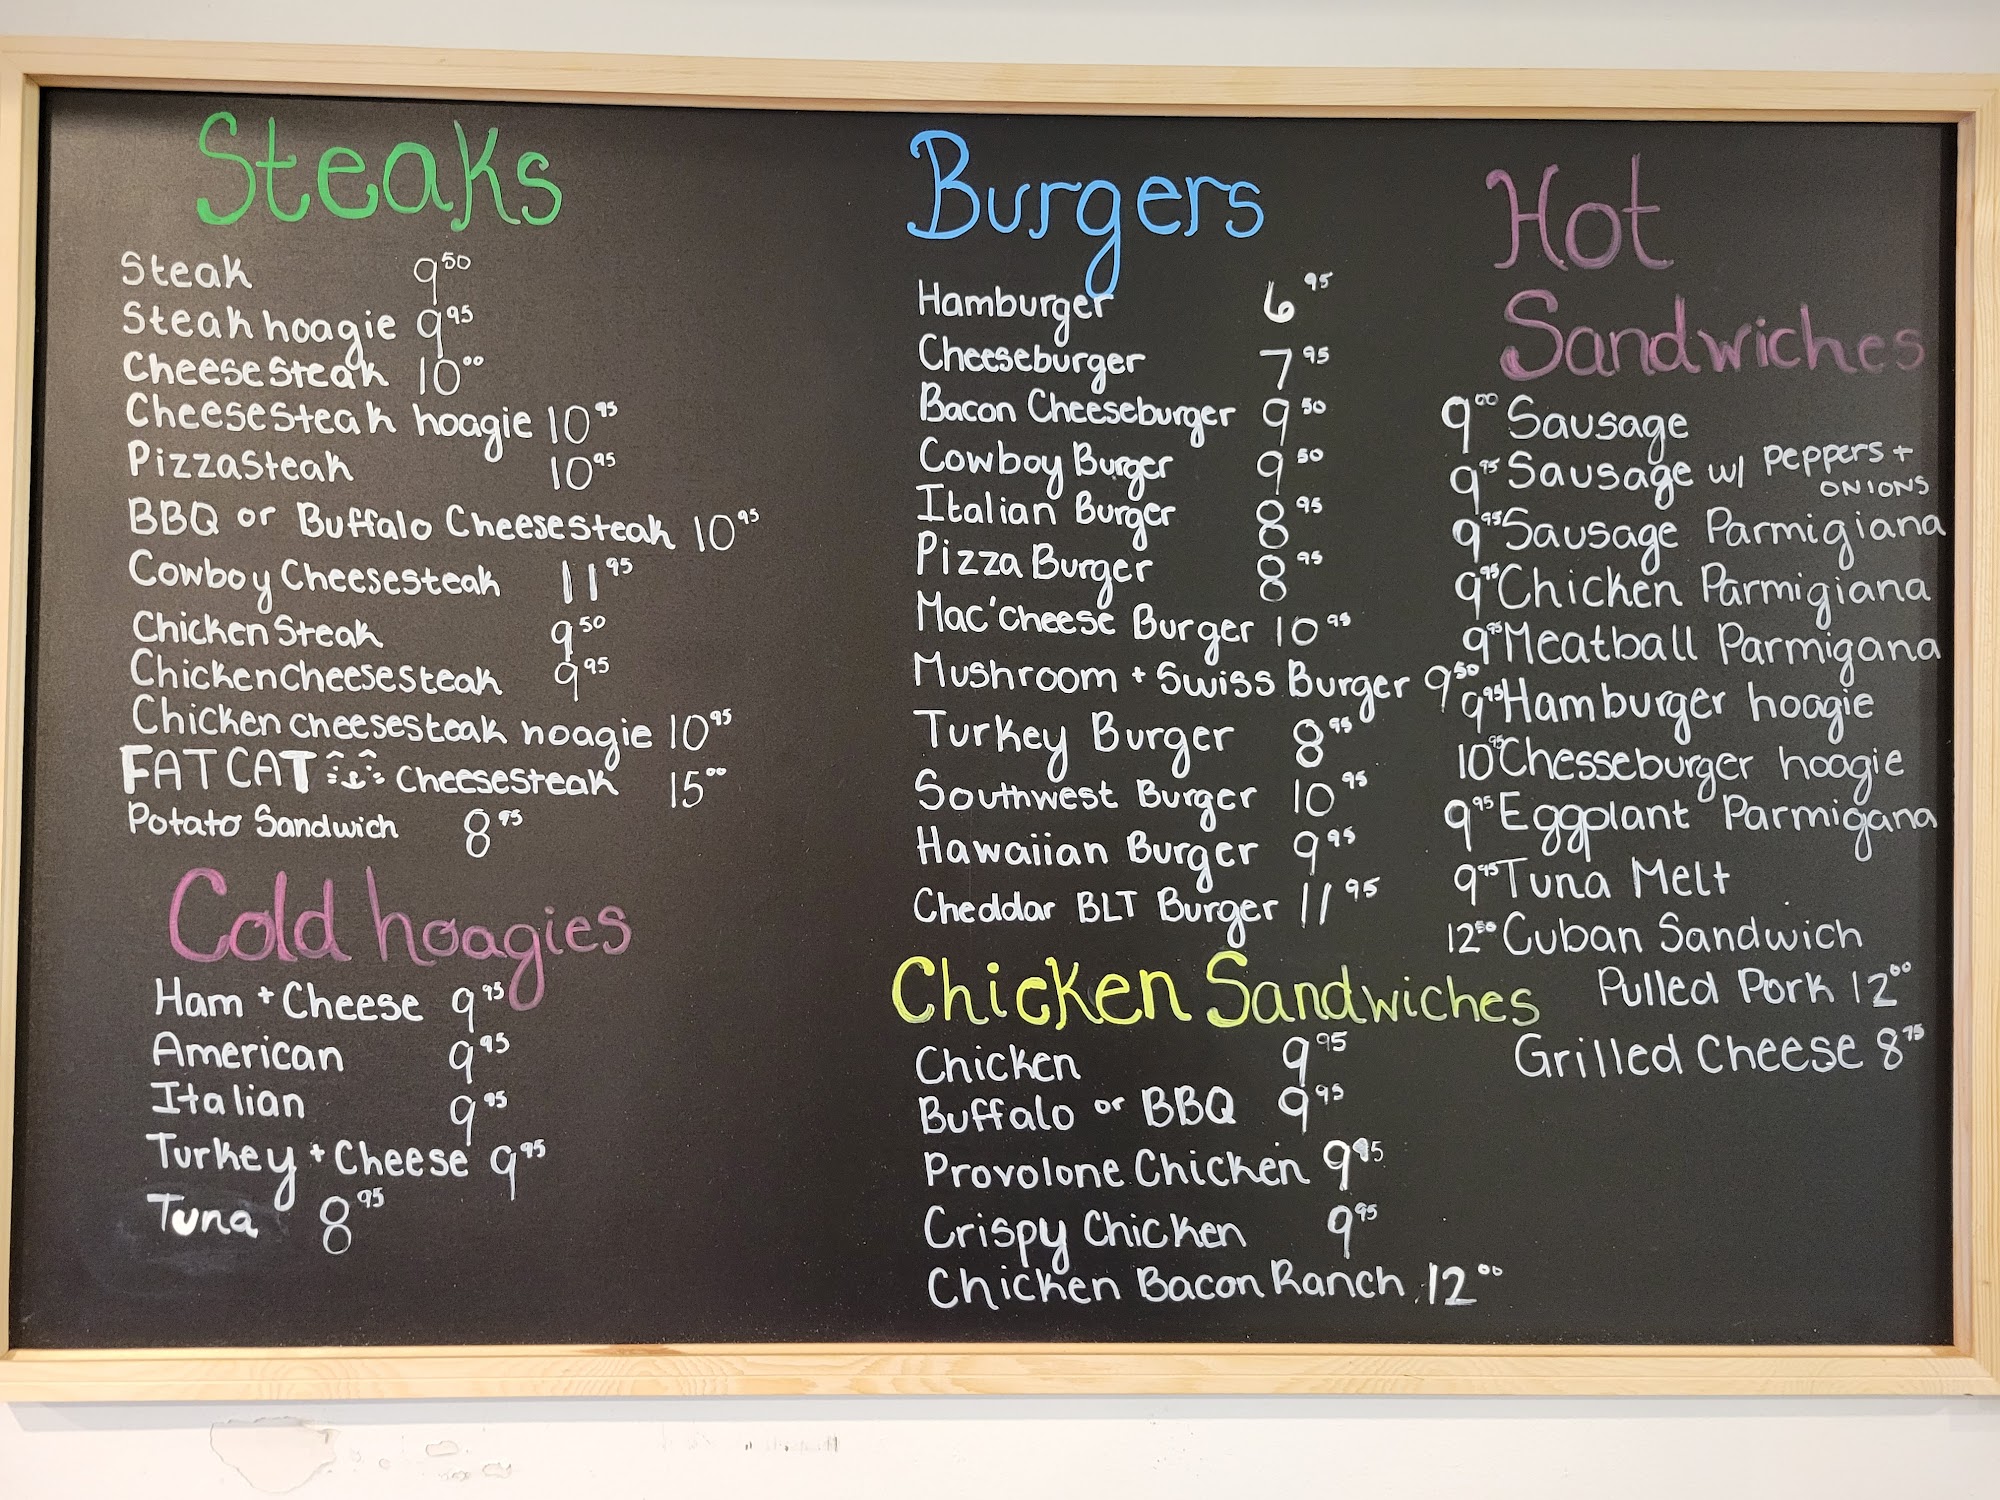 Steaks
Steak 9⁵⁰
Steak hoagie 9⁹⁵
Cheesesteak 10⁰⁰
Cheesesteak hoagie 10⁹⁵
Pizzasteak 10⁹⁵
BBQ or Buffalo Cheesesteak 10⁹⁵
Cowboy Cheesesteak 11⁹⁵
Chicken Steak 9⁵⁰
Chickencheesesteak 9⁹⁵
Chicken cheesesteak hoagie 10⁹⁵
FATCAT Cheesesteak 15⁰⁰
Potato Sandwich 8⁹⁵
Cold hoagies
Ham + Cheese 9⁹⁵
American 9⁹⁵
Italian 9⁹⁵
Turkey + Cheese 9⁹⁵
Tuna 8⁹⁵
Burgers
Hamburger 6⁹⁵
Cheeseburger 7⁹⁵
Bacon Cheeseburger 9⁵⁰
Cowboy Burger 9⁵⁰
Italian Burger 8⁹⁵
Pizza Burger 8⁹⁵
Mac'cheese Burger 10⁹⁵
Mushroom + Swiss Burger 9⁵⁰
Turkey Burger 8⁹⁵
Southwest Burger 10⁹⁵
Hawaiian Burger 9⁹⁵
Cheddar BLT Burger 11⁹⁵
Chicken Sandwiches
Chicken 9⁹⁵
Buffalo or BBQ 9⁹⁵
Provolone Chicken 9⁹⁵
Crispy Chicken 9⁹⁵
Chicken Bacon Ranch 12⁰⁰
Hot
Sandwiches
9⁰⁰ Sausage
9⁹⁵ Sausage w/ Peppers +
ONIONS
9⁹⁵ Sausage Parmigiana
9⁹⁵ Chicken Parmigiana
9⁹⁵ Meatball Parmigana
9⁹⁵ Hamburger hoagie
10⁹⁵ Chesseburger hoagie
9⁹⁵ Eggplant Parmigana
9⁹⁵ Tuna Melt
12⁵⁰ Cuban Sandwich
Pulled Pork 12⁰⁰
Grilled Cheese 8⁷⁵